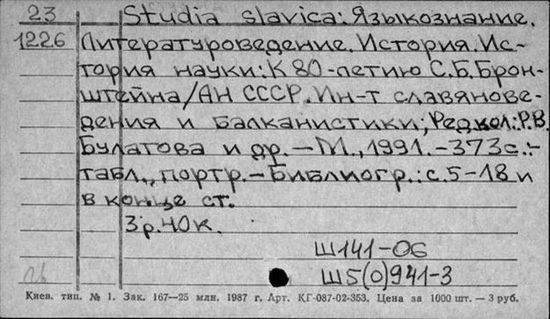 23 Studia slavica: Языкознание.
1226 Литературоведение. История. Ис-
тория науки: К 80-летию С.Б. Брон-
штейна/АН СССР. Ин-т славянове-
дения и балканистики; Редкол: Р.В.
Булатова и др. – М., 1991. – 373с. :-
табл., портр. – Библиогр.: с. 5-18 и
в конце ст.
3р. 40к.
Ш141-06
Ш5(0)941-3
Киев. тип. № 1. Зак. 167—25 млн. 1987 г. Арт. КГ-087-02-353. Цена за 1000 шт. — 3 руб.